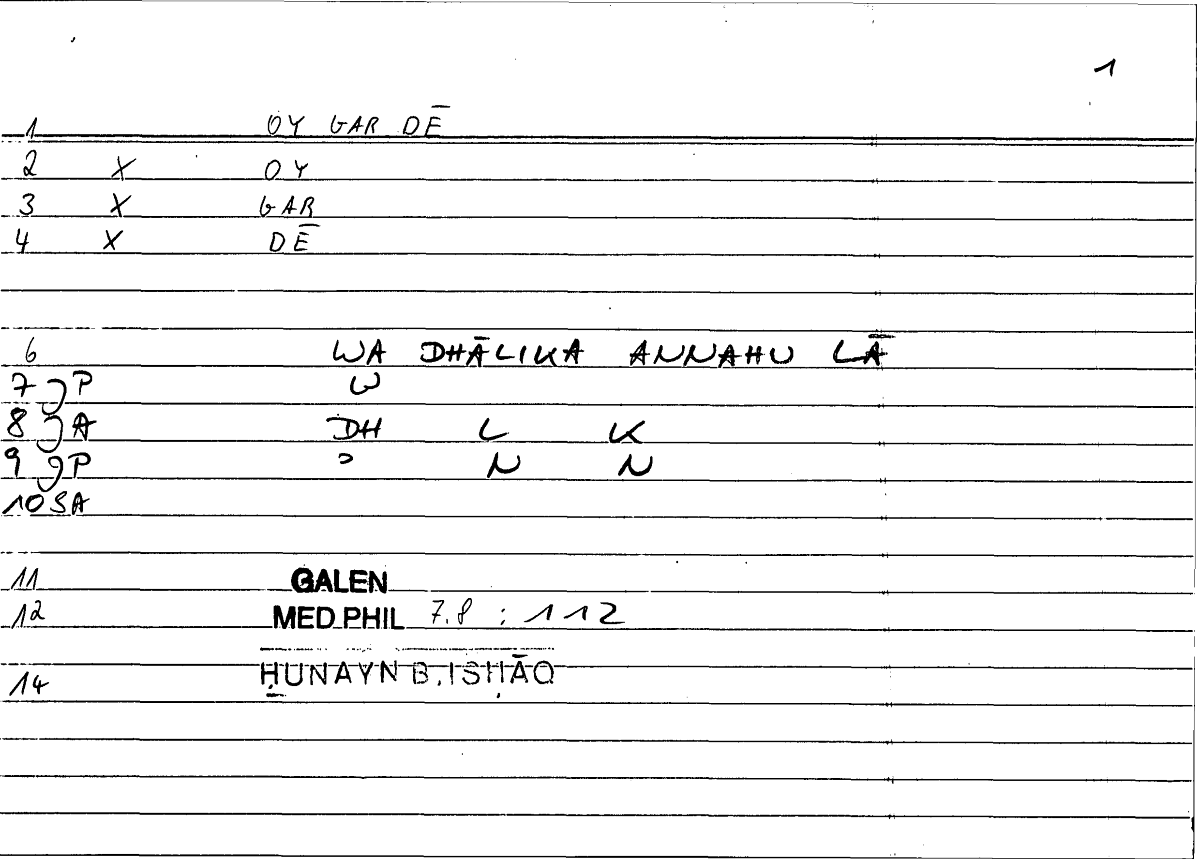 1
1 OY GAR DĒ
2 X OY
3 X GAR
4 X DĒ
6 WA DHĀLIKA ANNAHU LĀ
7 P W
8 A DH L K
9 P ʾ N N
10 SA
11 GALEN
12 MED PHIL 7.8 : 112
14 ḤUNAYN B. ISḤĀQ